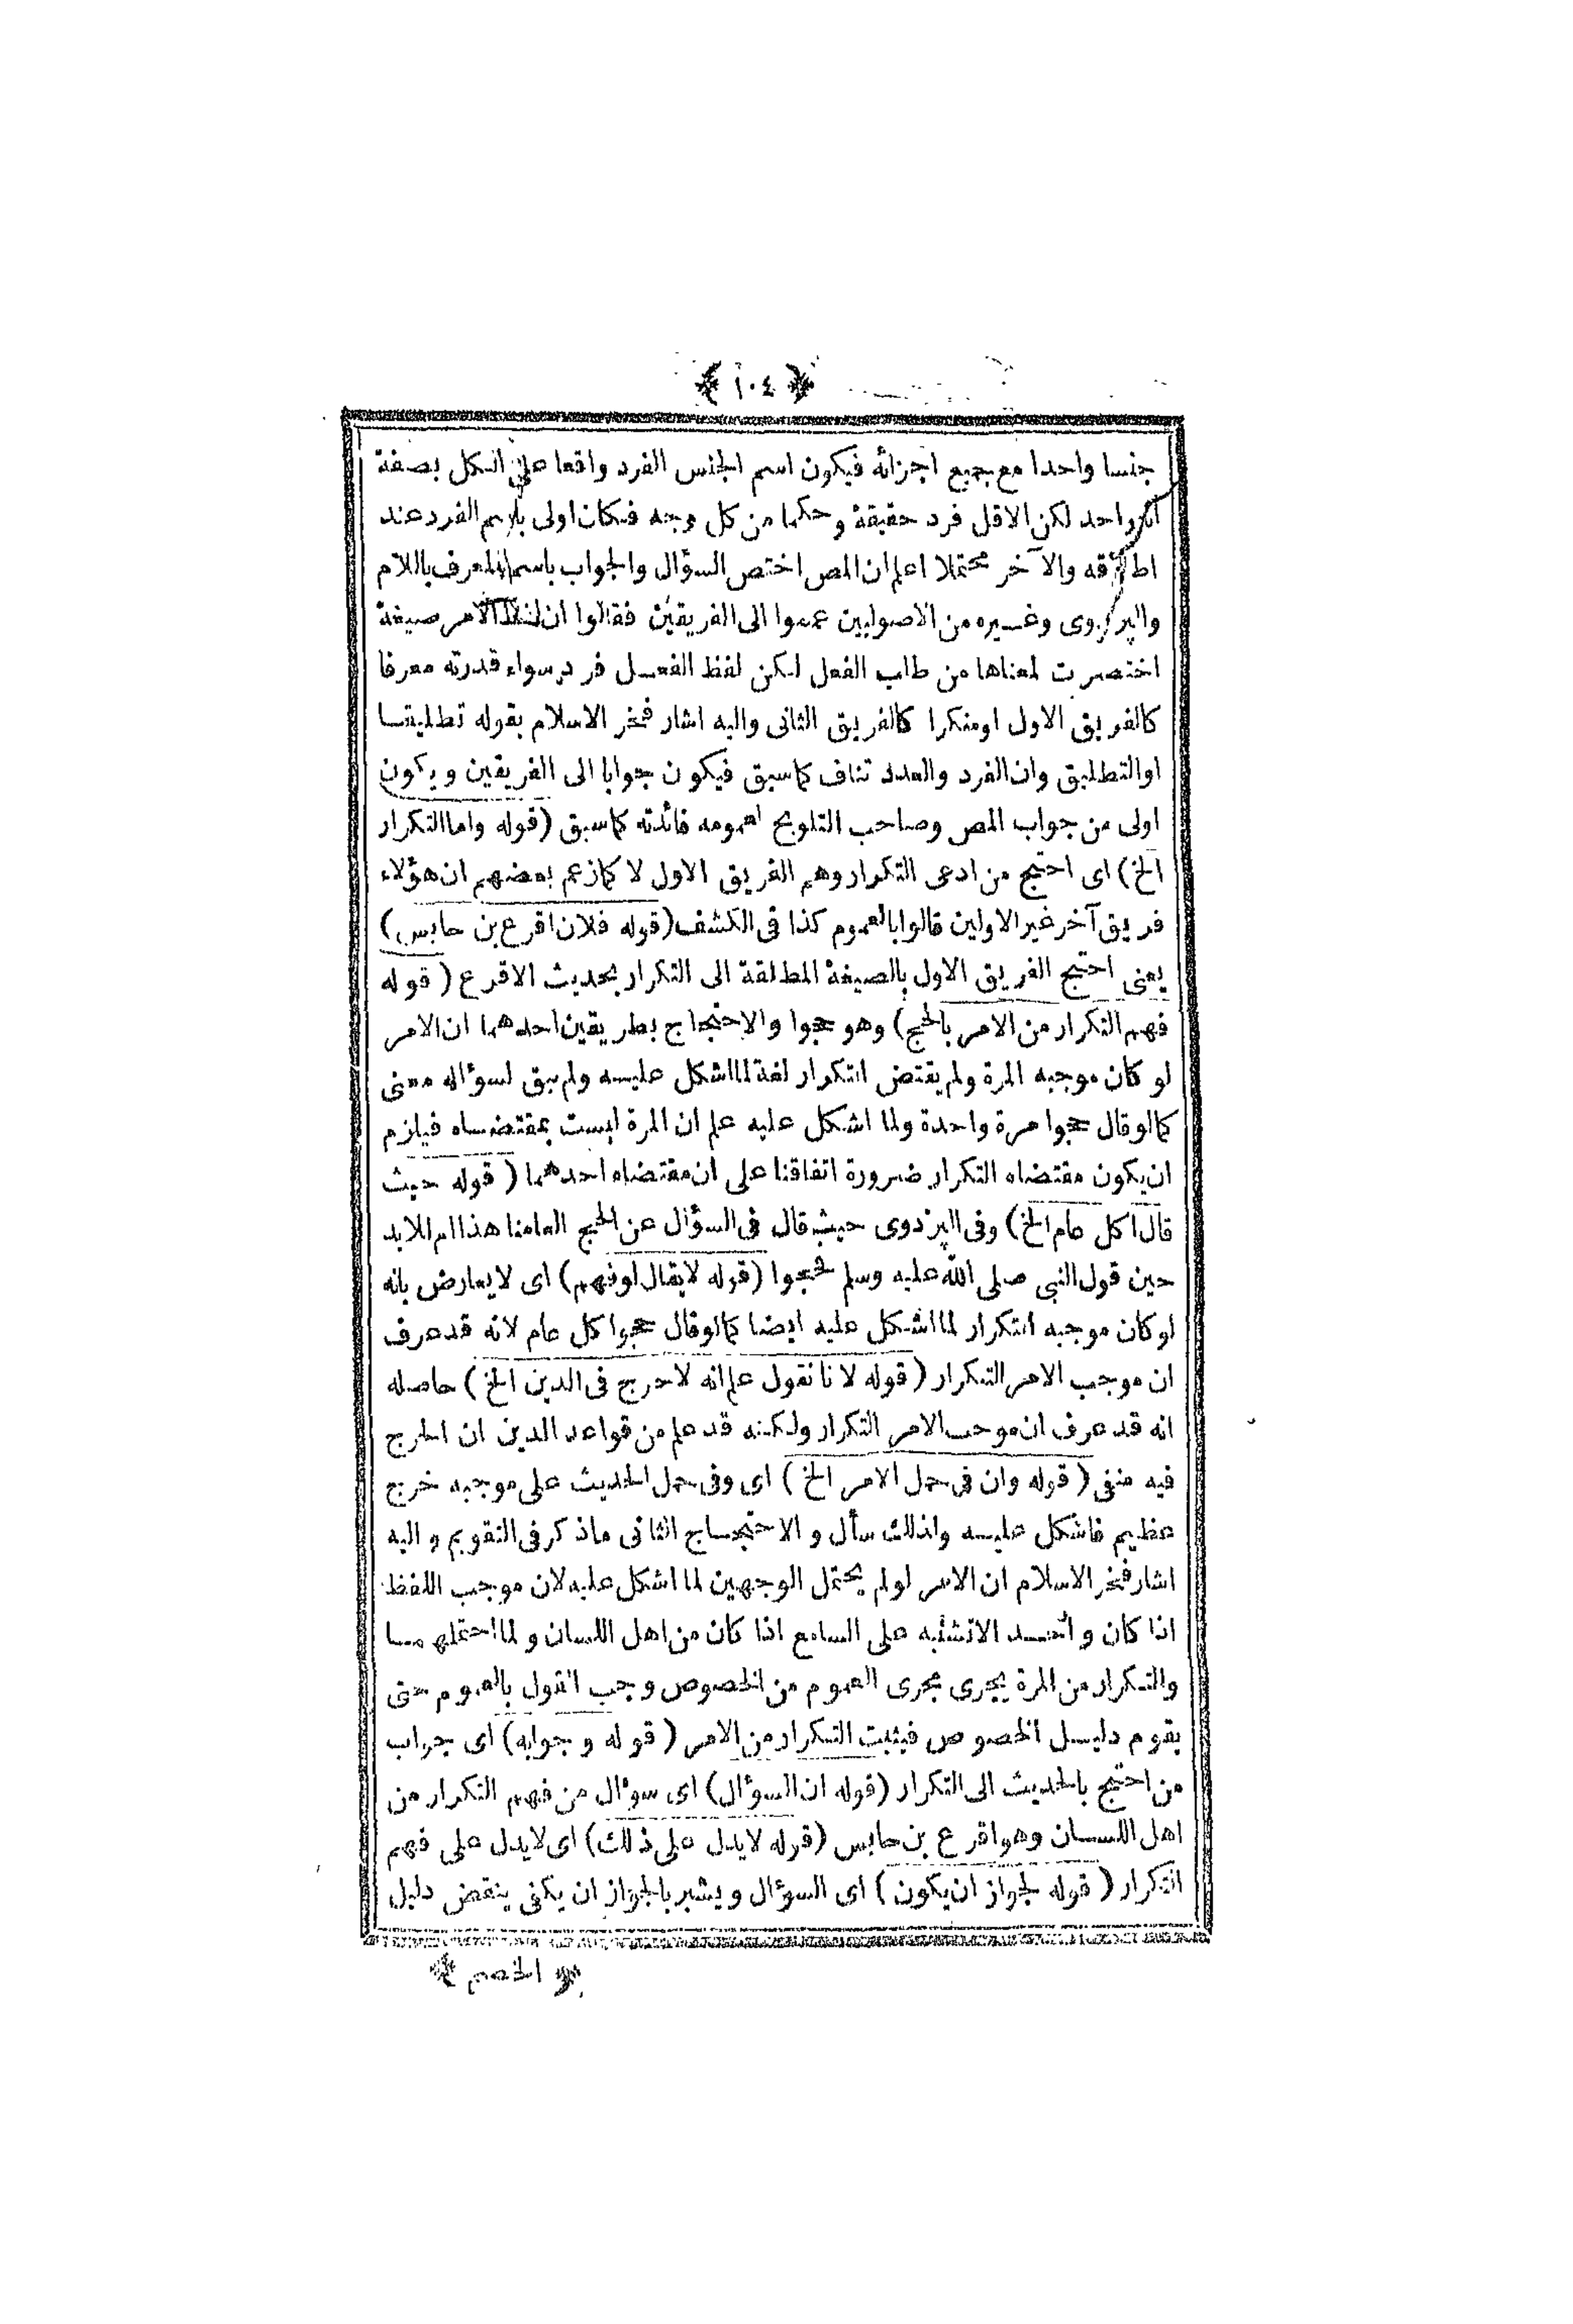 ﴿ ١٠٤ ﴾
جنسا واحدا مع جميع اجزائه فيكون اسم الجنس الفرد واقعا على الكل بصفة
انه واحد لكن الاقل فرد حقيقة وحكما من كل وجه فكان اولى بالاسم الفرد عند
اطلاقه والآخر محتملا اعلم ان المص اختص السؤال والجواب باسم المعرف باللام
والبزدوى وغيره من الاصوليين عمموا الى الفريقين فقالوا ان لفظ الامر صيغة
اختصرت لمعناها من طلب الفعل لكن لفظ الفعل فرد سواء قدرته معرفا
كالفريق الاول اومنكرا كالفريق الثانى واليه اشار فخر الاسلام بقوله تطليقا
اوالتطليق وان الفرد والعدد تناف كماسبق فيكون جوابا الى الفريقين ويكون
اولى من جواب المص وصاحب التلويح لعمومه فائدته كماسبق (قوله واماالتكرار
الخ) اى احتج من ادعى التكرار وهم الفريق الاول لا كمازعم بعضهم ان هؤلاء
فريق آخر غير الاولين قالوا بالعموم كذا فى الكشف (قوله فلان اقرع بن حابس)
يعنى احتج الفريق الاول بالصيغة المطلقة الى التكرار بحديث الاقرع (قوله
فهم التكرار من الامر بالحج) وهو حجوا والاحتجاج بطريقين احدهما ان الامر
لو كان موجبه المرة ولم يقتض التكرار لغة لما اشكل عليه ولم يبق لسؤاله معنى
كمالوقال حجوا مرة واحدة ولما اشكل عليه علم ان المرة ليست بمقتضاه فيلزم
ان يكون مقتضاه التكرار ضرورة اتفاقنا على ان مقتضاه احدهما (قوله حيث
قال اكل عام الخ) وفى البزدوى حيث قال فى السؤال عن الحج العامنا هذا ام للابد
حين قول النبى صلى الله عليه وسلم فحجوا (قوله لايقال لوفهم) اى لايعارض بانه
لوكان موجبه التكرار لما اشكل عليه ايضا كمالوقال حجوا كل عام لانه قد عرف
ان موجب الامر التكرار (قوله لانا نقول علم انه لاحرج فى الدين الخ) حاصله
انه قد عرف ان موجب الامر التكرار ولكنه قد علم من قواعد الدين ان الحرج
فيه منفى (قوله وان فى حمل الامر الخ) اى وفى حمل الحديث على موجبه خرج
عظيم فاشكل عليه ولذلك سأل والاحتجاج الثانى ماذكر فى التقويم واليه
اشار فخر الاسلام ان الامر لو لم يحتمل الوجهين لما اشكل عليه لان موجب اللفظ
اذا كان واحد الاتشتبه على السامع اذا كان من اهل اللسان ولما احتملهما
والتكرار من المرة يجرى مجرى العموم من الخصوص وجب القول بالعموم حتى
يقوم دليل الخصوص فيثبت التكرار من الامر (قوله وجوابه) اى جواب
من احتج بالحديث الى التكرار (قوله ان السؤال) اى سؤال من فهم التكرار من
اهل اللسان وهو اقرع بن حابس (قوله لايدل على ذلك) اى لايدل على فهم
التكرار (قوله لجواز ان يكون) اى السؤال ويشير بالجواز ان يكفى ينقض دليل
﴿ الخصم ﴾